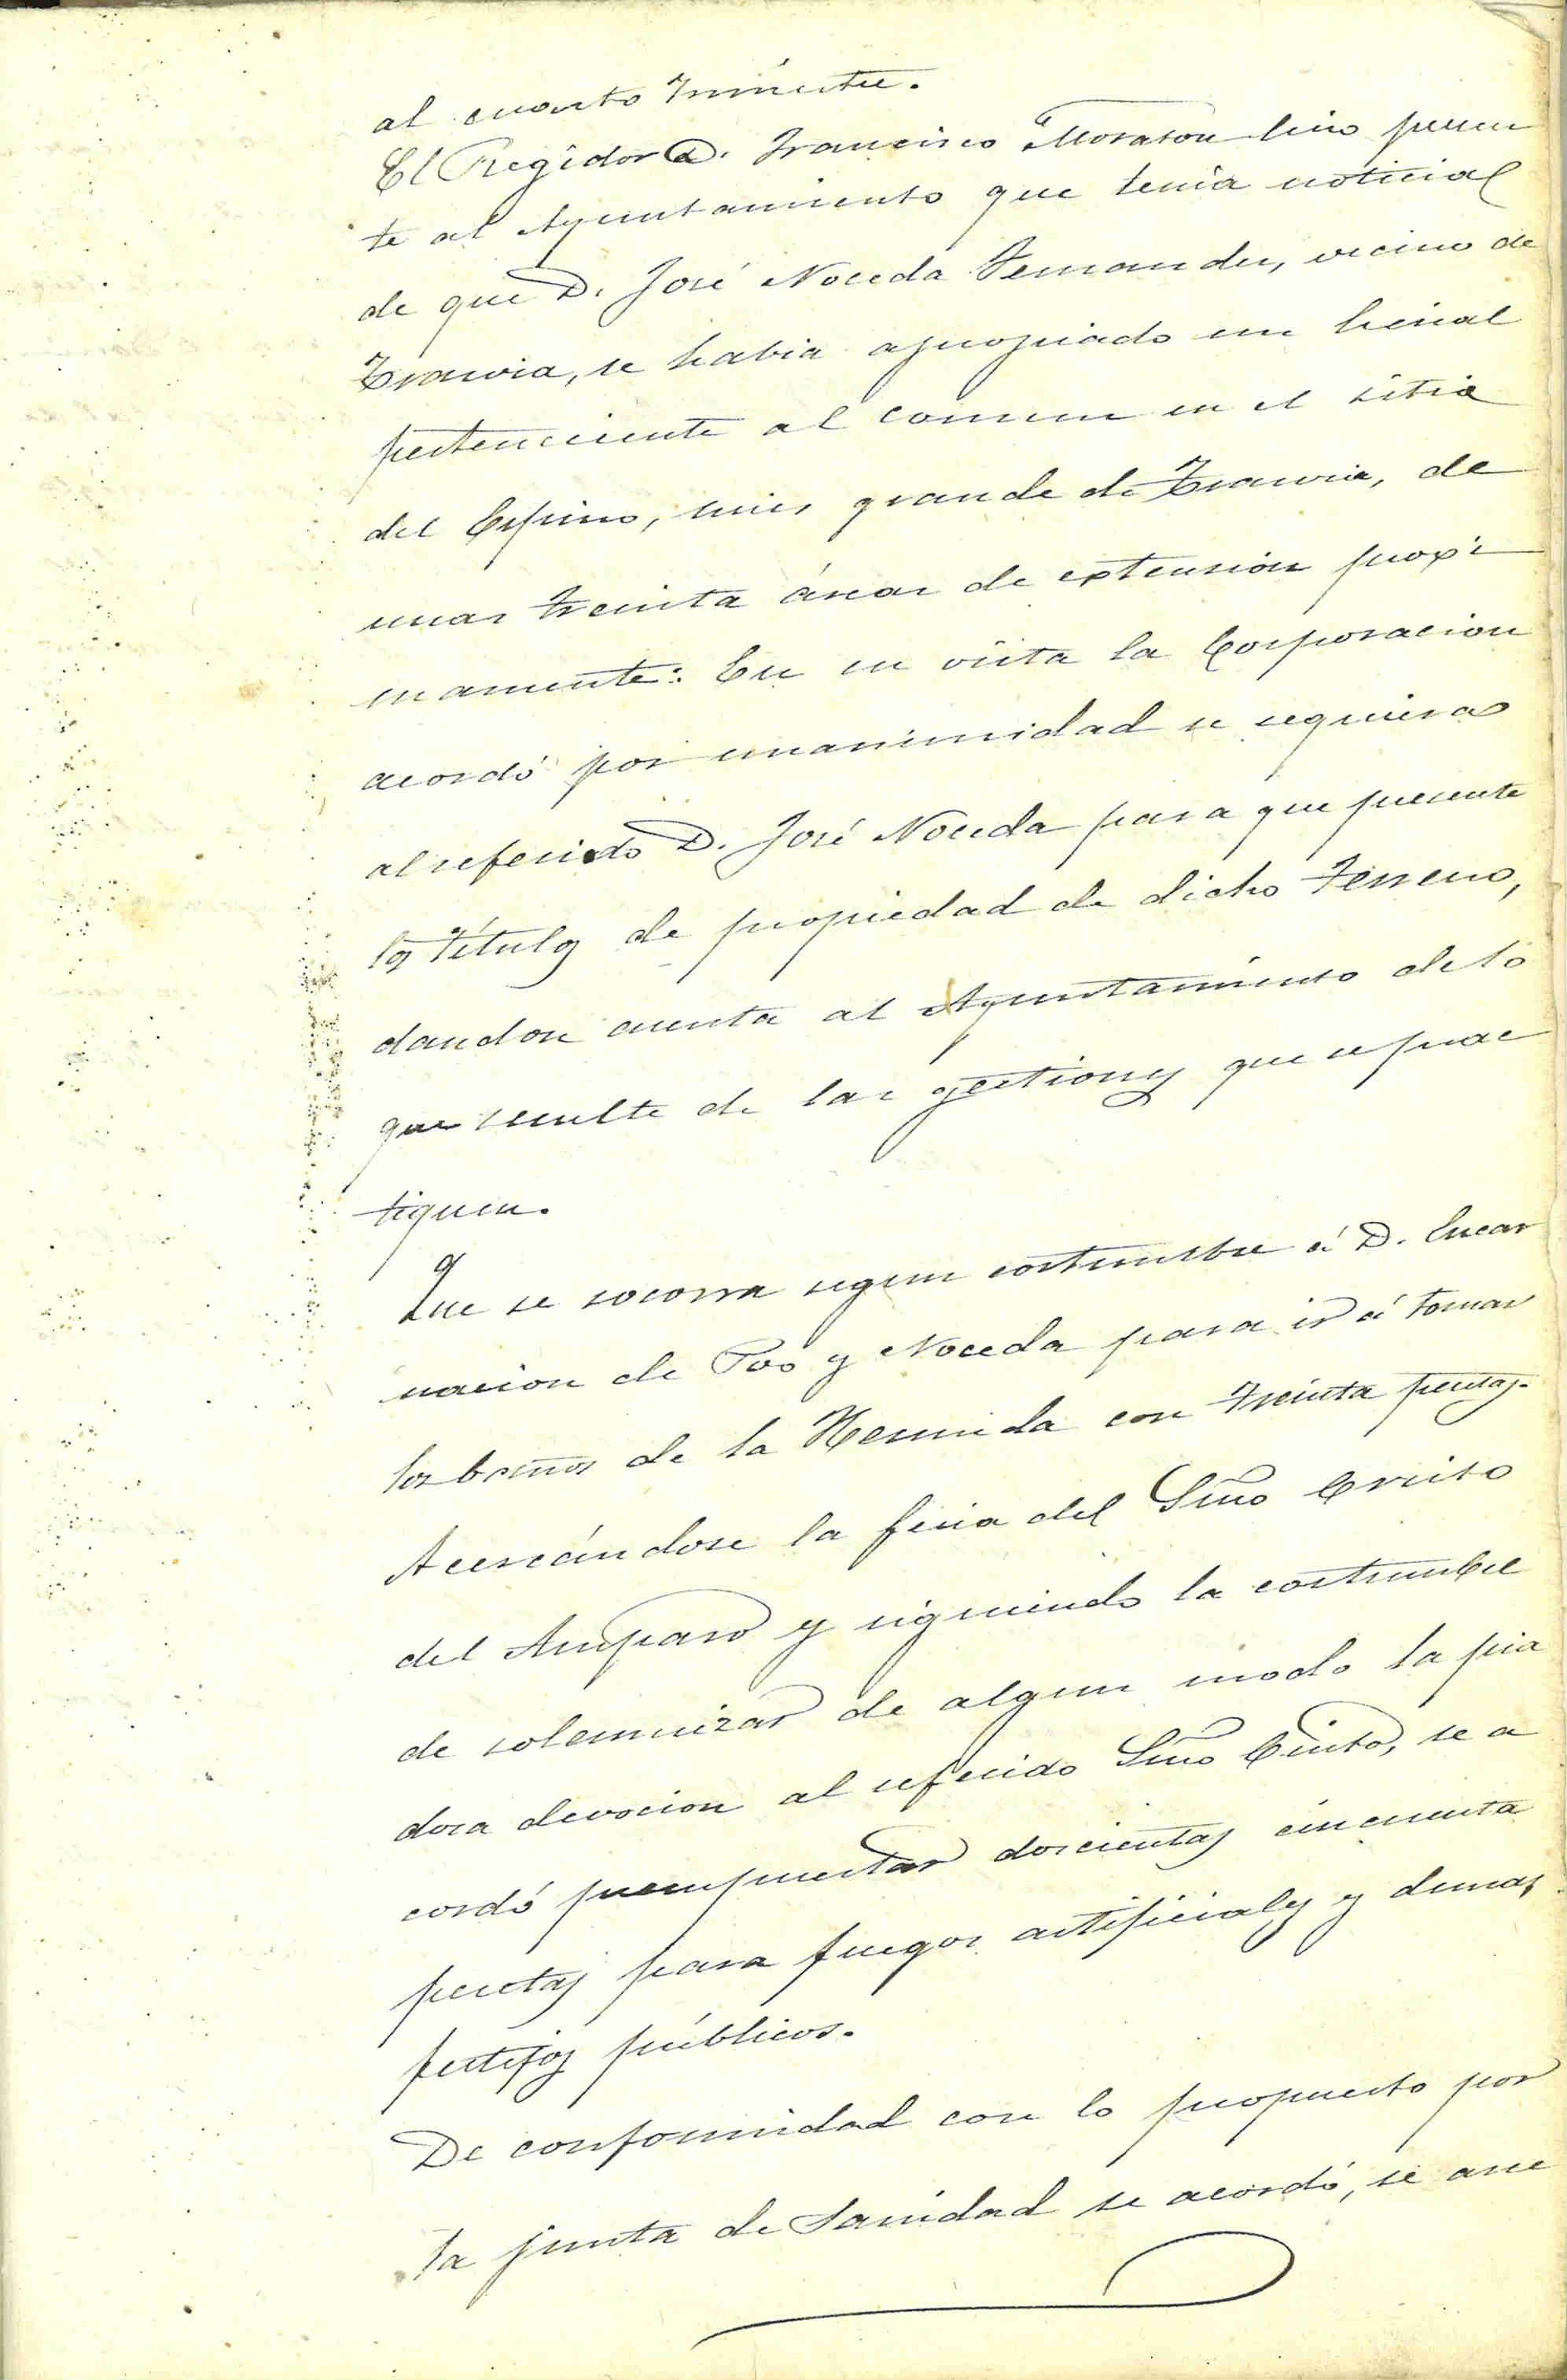 al cuarto trimestre.
El Regidor D. Francisco Morason hizo presen
te al Ayuntamiento que tenia noticias
de que D. José Noceda Fernandez, vecino de
Travia, se habia apropiado un herial
perteneciente al comun en el sitio
del Espino, mies grande de Travia, de
unas treinta áreas de extension proxi
mamente: En su vista la Corporacion
acordó por unanimidad se requiera
al referido D. José Noceda para que presente
los títulos de propiedad de dicho terreno,
dandose cuenta al Ayuntamiento de lo
que resulte de las gestiones que se prac
tiquen.
Que se socorra segun costumbre á D. Encar
nacion de Poo y Noceda para ir á tomar
los baños de la Hermida con treinta pesetas.
Acercándose la feria del Smo Cristo
del Amparo y siguiendo la costumbre
de solemnizar de algun modo la pia
dosa devocion al referido Smo Cristo, se a
cordó presupuestar doscientas cincuenta
pesetas para fuegos artificiales y demas
festejos públicos.
De conformidad con lo propuesto por
la junta de Sanidad se acordó, se ane